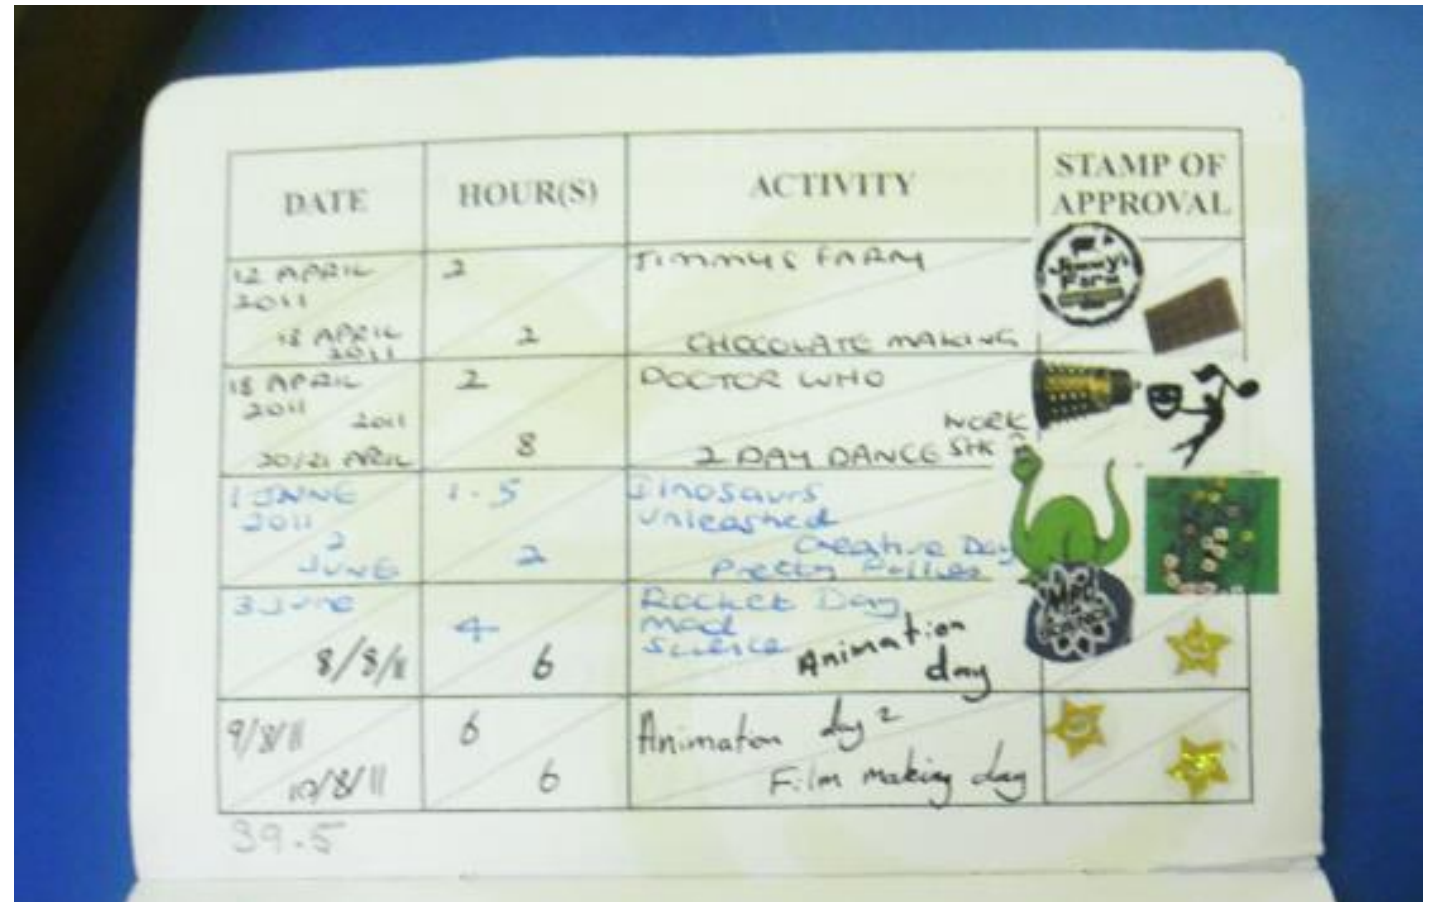 DATE HOUR(S) ACTIVITY STAMP OF
APPROVAL
12 APRIL 2 JIMMYS FARM
2011
Jimmy's
Farm
18 APRIL 2 CHOCOLATE MAKING
2011
18 APRIL 2 DOCTOR WHO
2011
2011 WORK
20/21 APRIL 8 2 DAY DANCE
1 JUNE 1.5 Dinosaurs
2011 unleashed
2 Creative Day
JUNE 2 Pretty Pollies
3 June 4 Rocket Day
mad
science
MAD
SCIENCE
8/8/11 6 Animation
day
9/8/11 6 Animation day 2
10/8/11 6 Film making day
39.5